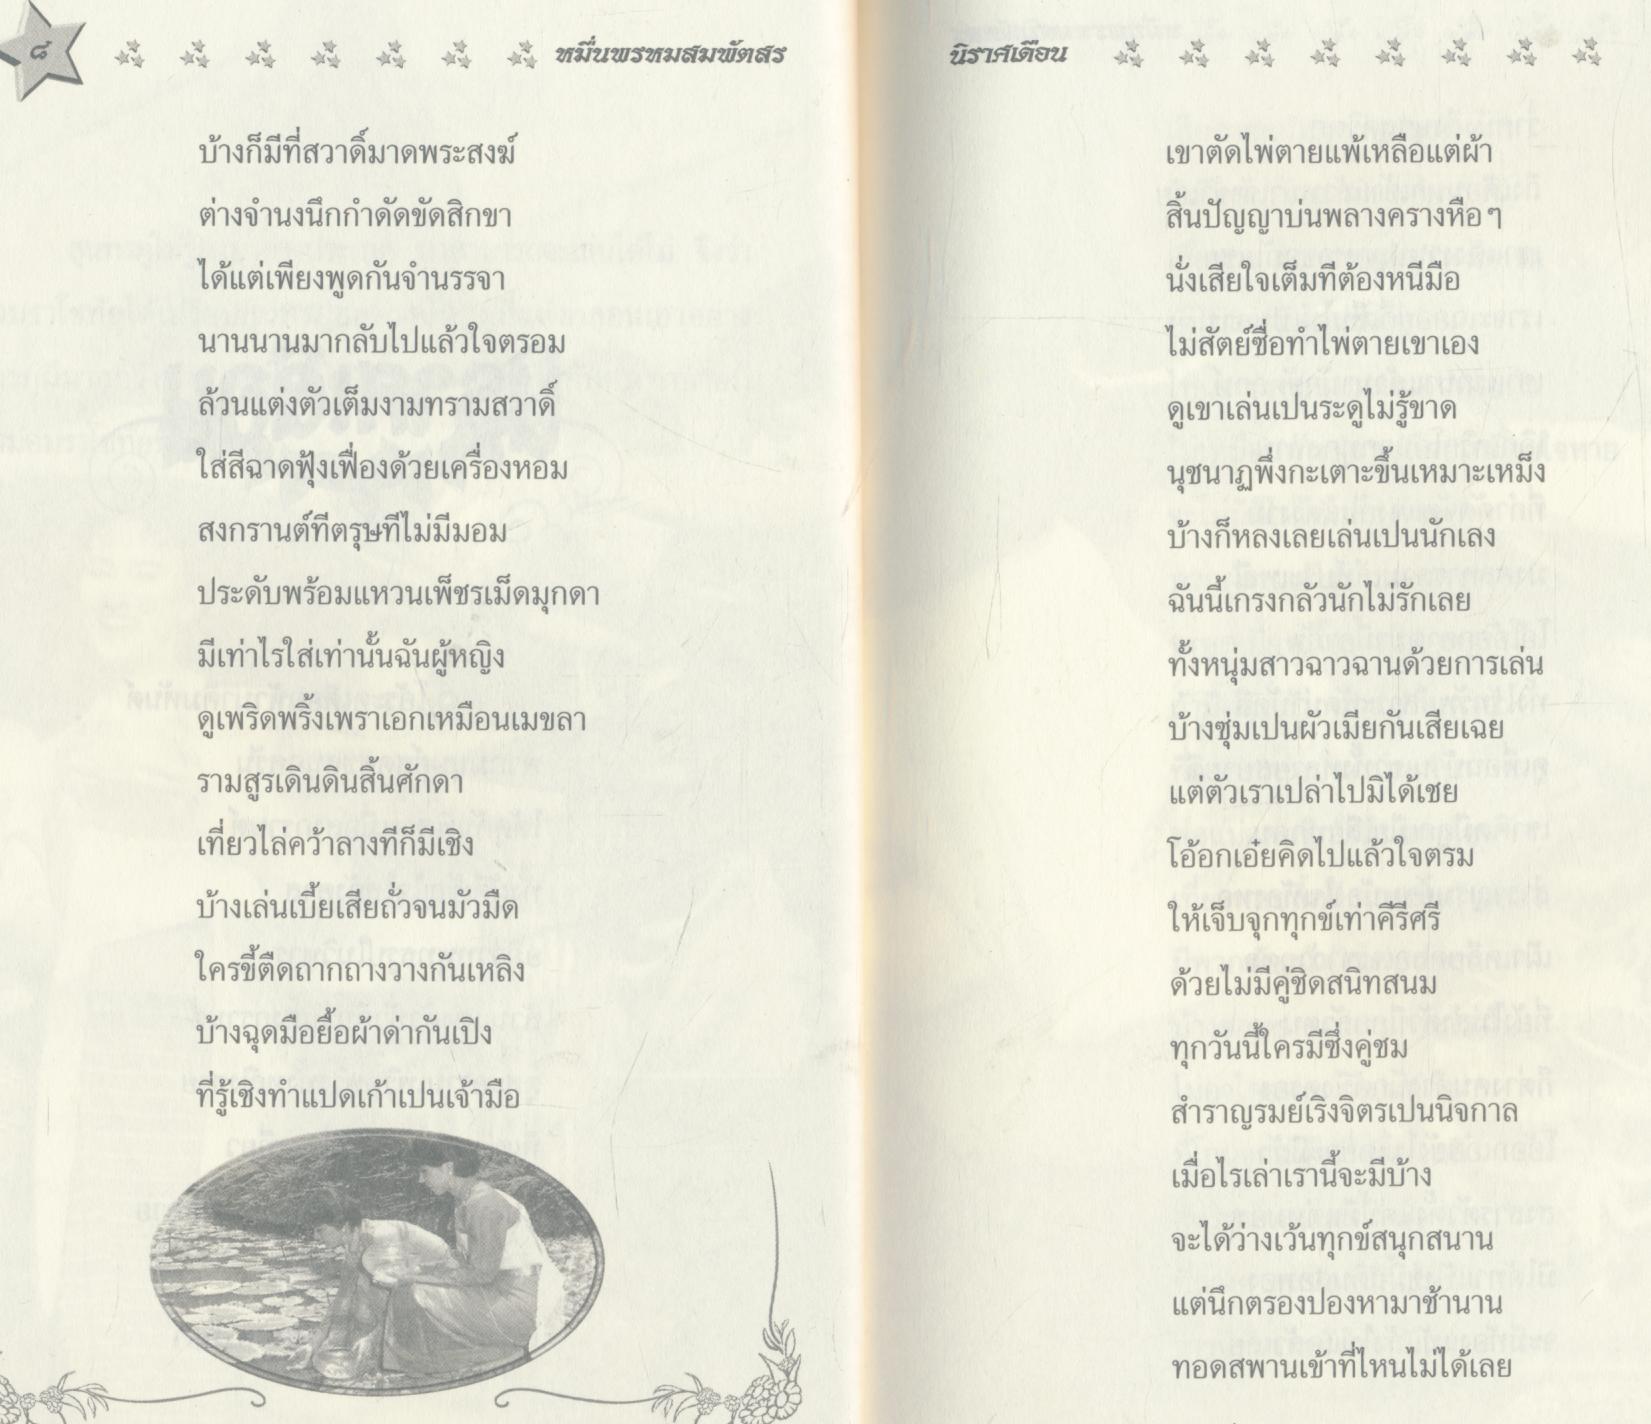 ๘
หมื่นพรหมสมพัตสร
บ้างก็มีที่สวาดิ์มาดพระสงฆ์
ต่างจำนงนึกกำดัดขัดสิกขา
ได้แต่เพียงพูดกันจำนรรจา
นานนานมากลับไปแล้วใจตรอม
ล้วนแต่งตัวเต็มงามทรามสวาดิ์
ใส่สีฉาดฟุ้งเฟื่องด้วยเครื่องหอม
สงกรานต์ทีตรุษทีไม่มีมอม
ประดับพร้อมแหวนเพ็ชรเม็ดมุกดา
มีเท่าไรใส่เท่านั้นฉันผู้หญิง
ดูเพริดพริ้งเพราเอกเหมือนเมขลา
รามสูรเดินดินสิ้นศักดา
เที่ยวไล่คว้าลางทีก็มีเชิง
บ้างเล่นเบี้ยเสียถั่วจนมัวมืด
ใครขี้ตืดถากถางวางกันเหลิง
บ้างฉุดมือยื้อผ้าด่ากันเปิง
ที่รู้เชิงทำแปดเก้าเปนเจ้ามือ
นิราศเดือน
เขาตัดไพ่ตายแพ้เหลือแต่ผ้า
สิ้นปัญญาบ่นพลางครางหือๆ
นั่งเสียใจเต็มทีต้องหนีมือ
ไม่สัตย์ซื่อทำไพ่ตายเขาเอง
ดูเขาเล่นเปนระดูไม่รู้ขาด
นุชนาฏพึ่งกะเตาะขึ้นเหมาะเหม็ง
บ้างก็หลงเลยเล่นเปนนักเลง
ฉันนี้เกรงกลัวนักไม่รักเลย
ทั้งหนุ่มสาวฉาวฉานด้วยการเล่น
บ้างซุ่มเปนผัวเมียกันเสียเฉย
แต่ตัวเราเปล่าไปมิได้เชย
โอ้อกเอ๋ยคิดไปแล้วใจตรม
ให้เจ็บจุกทุกข์เท่าคีรีศรี
ด้วยไม่มีคู่ชิดสนิทสนม
ทุกวันนี้ใครมีซึ่งคู่ชม
สำราญรมย์เริงจิตรเปนนิจกาล
เมื่อไรเล่าเรานี้จะมีบ้าง
จะได้ว่างเว้นทุกข์สนุกสนาน
แต่นึกตรองปองหามาช้านาน
ทอดสพานเข้าที่ไหนไม่ได้เลย